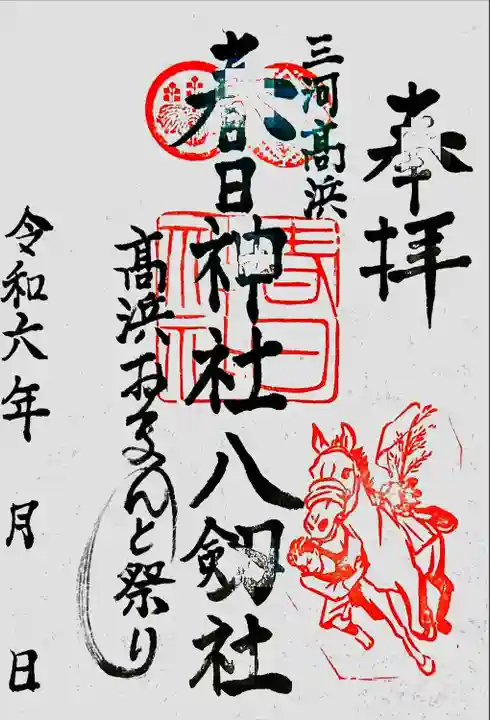 奉拝
三河高浜
春日神社八剱社
春日神社
高浜おまんと祭り
令和六年 月 日